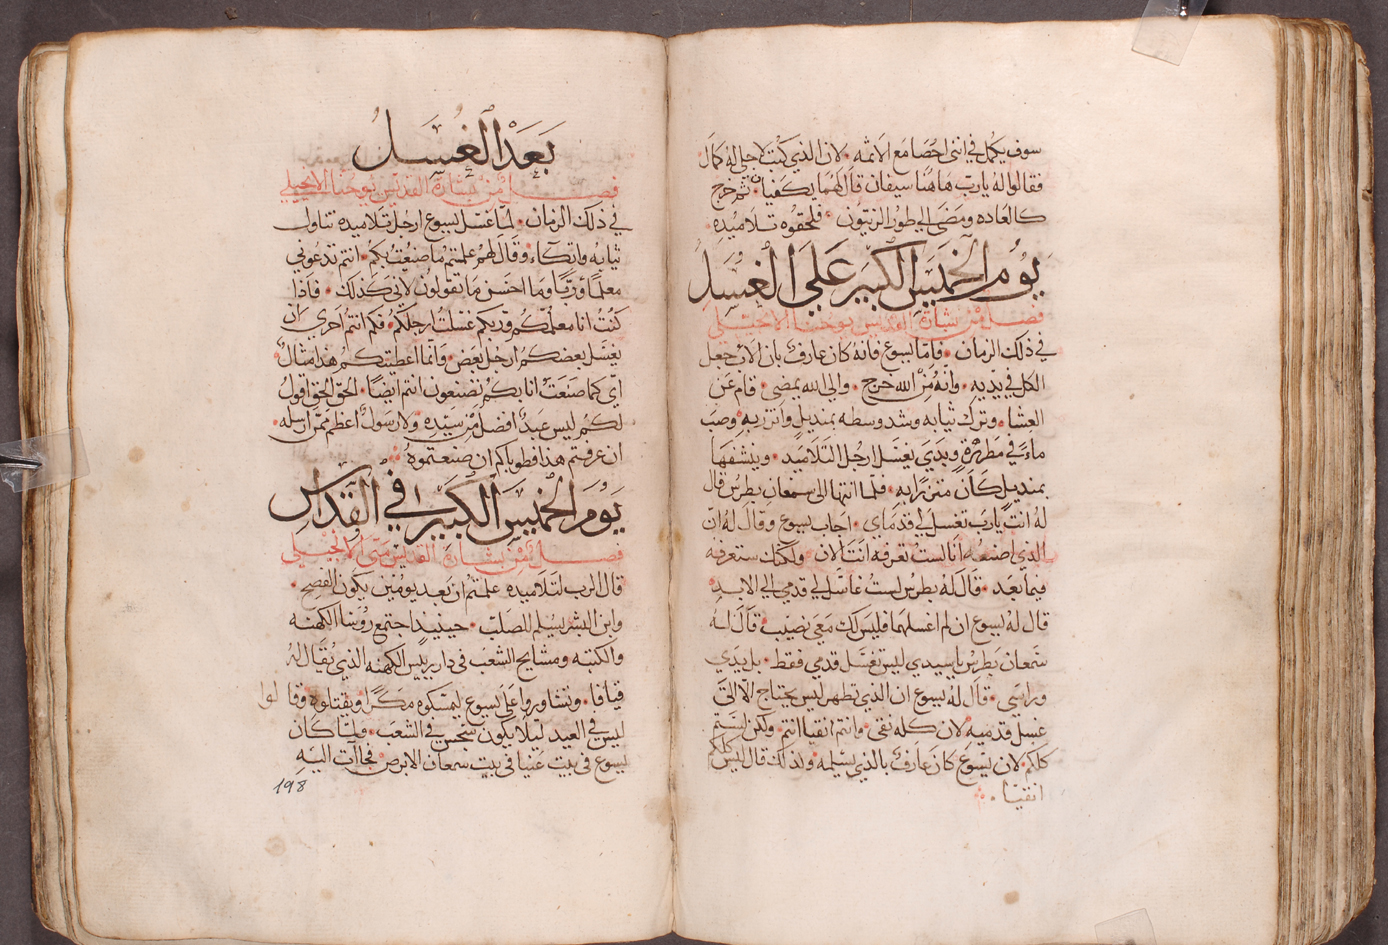 سوف يكمل في انني احصا مع الاثمه • لان الذي كتب لاجلي له كمال
فقالوا له يا رب هاهنا سيفان قال لهما يكفيان • ثم خرج
كالعاده ومضى الى طور الزيتون • فلحقوه تلاميذه •
يوم الخميس الكبير على الغسل
فصل من بشارة القديس يوحنا الانجيلي
في ذلك الزمان • فاما يسوع فانه كان عارف بان الاب جعل
الكل في يديه • وانه من الله خرج • والى الله يمضي • قام عن
العشا • وترك ثيابه وشد وسطه بمنديل واتزر به وصب
ماء في مطهرة وبدي يغسل ارجل التلاميد • وينشفها
بمنديل كان متزرا به • فلما انتها الى سمعان بطرس قال
له انت يا رب تغسل لي قدماي • اجاب يسوع وقال له ان
الذي اصنعه انا لست تعرفه انت الان • ولكنك ستعرفه
فيما بعد • قال له بطرس لست غاسل لي قدمي الى الابد
قال له يسوع ان لم اغسلهما فليس لك معي نصيب قال له
سمعان بطرس يا سيدي ليس تغسل قدمي فقط • بل يدي
وراسي • قال له يسوع ان الذي تطهر ليس يحتاج الا الى
غسل قدميه لان كله نقي • وانتم انقيا انتم • ولكن لستم
كلكم • لان يسوع كان عارف بالذي يسلمه • ولذلك قال ليس كلكم
انقيا •
بعد الغسل
فصل من بشارة القديس يوحنا الانجيلي
في ذلك الزمان • لما غسل يسوع ارجل تلاميذه تناول
ثيابه واتكاء • وقال لهم علمتم ما صنعت بكم • انتم تدعوني
معلما وربا وما احسن ما تقولون لاني كذلك • فاذا
كنت انا معلمكم وربكم غسلت ارجلكم • فكم انتم احرى ان
يغسل بعضكم ارجل بعض • وانما اعطيتكم هذا مثال •
اي كما صنعت انا بكم تصنعون انتم ايضا • الحق الحق اقول
لكم ليس عبدا افضل من سيده • ولا رسول اعظم ممن ارسله •
ان عرفتم هذا فطوباكم ان صنعتموه
يوم الخميس الكبير في القداس
فصل من بشارة القديس متى الانجيلي
قال الرب لتلاميذه علمتم ان بعد يومين يكون الفصح •
وابن البشر يسلم للصلب • حينيذ اجتمع روسا الكهنه
والكتبه ومشايخ الشعب في دار رييس الكهنه الذي يقال له
قيافا • وتشاوروا على يسوع ليمسكوه مكرا ويقتلوه وقالوا
ليس في العيد ليلا يكون سجس في الشعب • ولما كان
يسوع في بيت عنيا في بيت سمعان الابرص • فجاات اليه
198